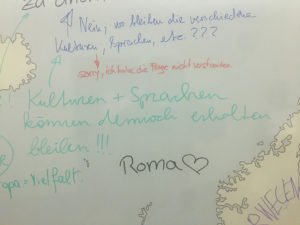 zu
Nein, wo bleiben die verschiedene
Kulturen, Sprachen, etc. ???
sorry, ich habe die Frage nicht verstanden
! Kulturen + Sprachen
können dennoch erhalten
bleiben !!!
Roma ♡
opa = Vielfalt.
RWEGEN